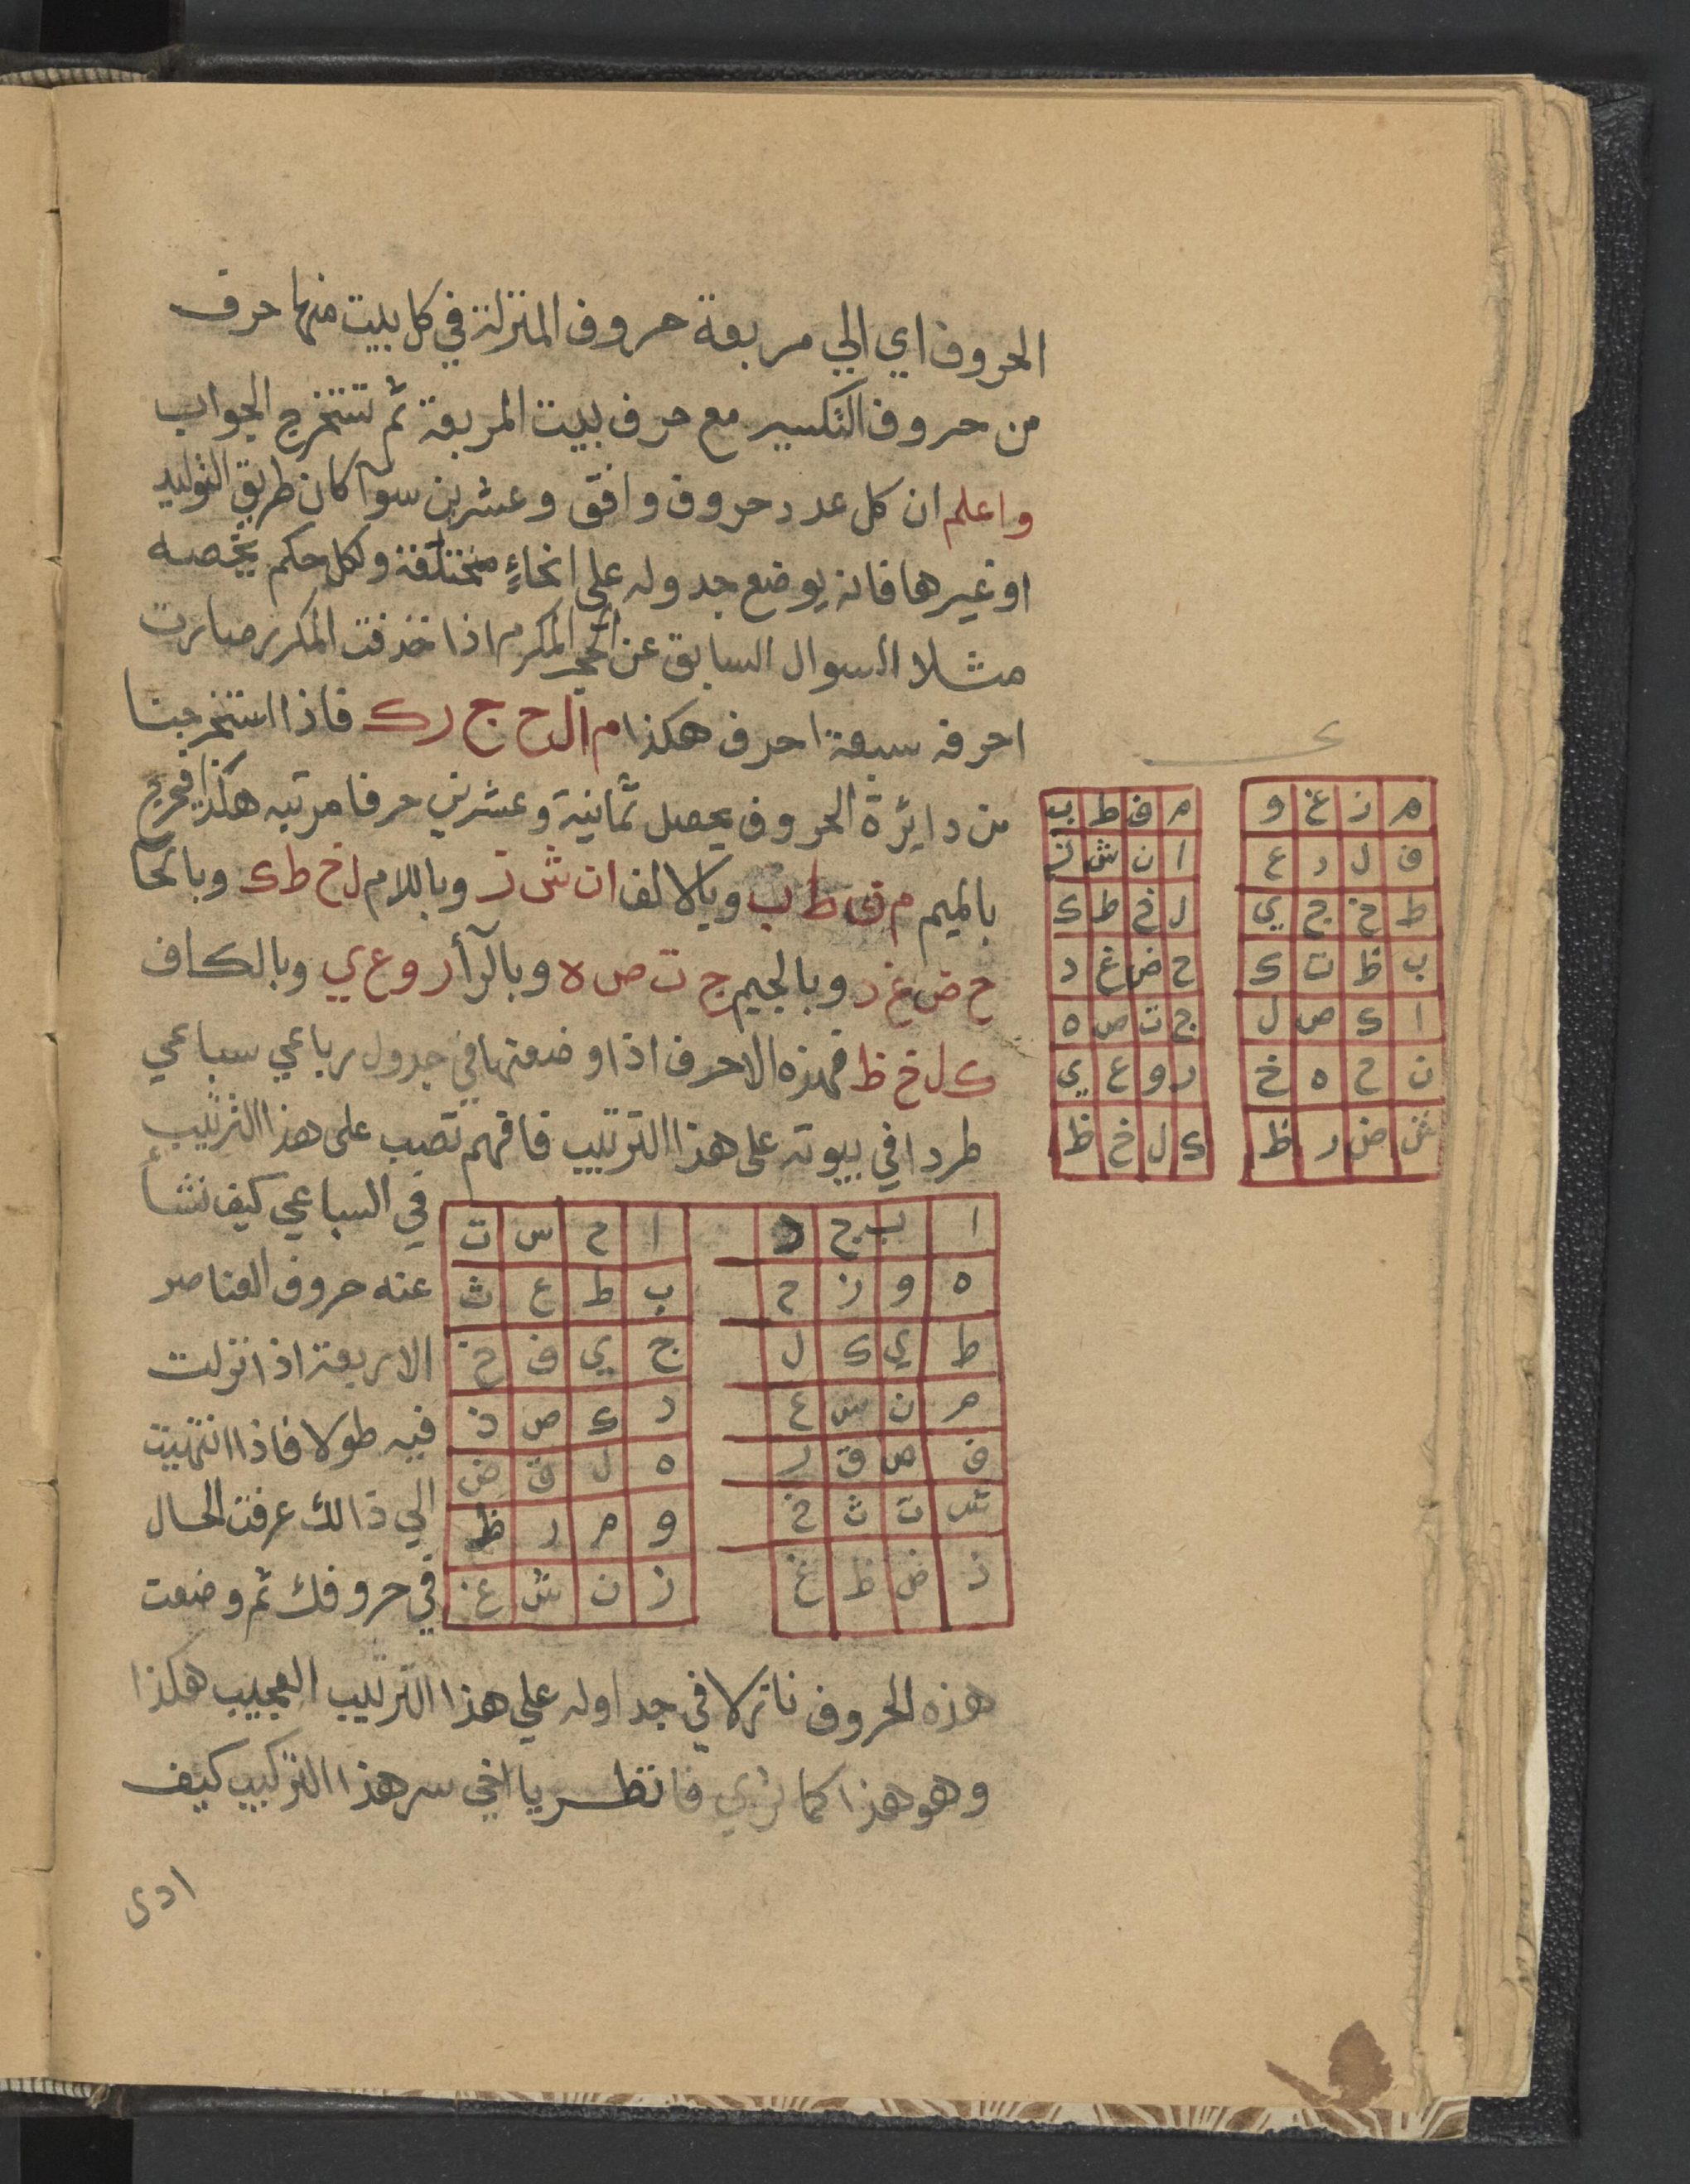 الحروف اي الي مربعة حروف المنزلة في كل بيت منها حرف
من حروف التكسير مع حرف بيت المربعة ثم تستخرج الجواب
واعلم ان كل عدد حروف وافق وعشرين سوآ كان طريق التوليد
او غيرها فانه يوضع جدوله علي انحاءٍ مختلفة ولكل حكم يخصه
مثلا السوال السابق عن الحجر المكرم اذا حذفت المكرر صارت
احرفه سبعة احرف هكذا م ا ل ح ج ر ك فاذا استخرجنا
من دايرة الحروف يحصل ثمانية وعشرين حرفا مرتبه هكذا فيخرج
بالميم م ف ط ب وبالالف ا ن ش ز وباللام ل خ ط ك وبالحا
ح ض غ د وبالجيم ج ت ص ه وبالرآ ر و ع ي وبالكاف
ك ل خ ظ فهذه الاحرف اذا وضعتها في جدول رباعي سباعي
طردا في بيوته علي هذا الترتيب فافهم تصب علي هذا الترتيب
في السباعي كيف نشأ
عنه حروف العناصر
الاربعة اذا نزلت
فيه طولا فاذا انتهيت
الي ذالك عرفت الحال
في حروفك ثم وضعت
ا ب ج د
ه و ز ح
ط ي ك ل
م ن س ع
ف ص ق ر
ش ت ث خ
ذ ض ظ غ
ا ح س ت
ب ط ع ث
ج ي ف خ
د ك ص ذ
ه ل ق ض
و م ر ظ
ز ن ش غ
هذه الحروف نازلا في جداوله علي هذا الترتيب العجيب هكذا
وهو هذا كما تري فانظر يا اخي سر هذا التركيب كيف
م ز غ و
ف ل د ع
ط خ ج ي
ب ظ ت ك
ا ك ص ل
ن ح ه خ
ش ض ر ظ
م ف ط ب
ا ن ش ز
ل خ ط ك
ح ض غ د
ج ت ص ه
ر و ع ي
ك ل خ ظ